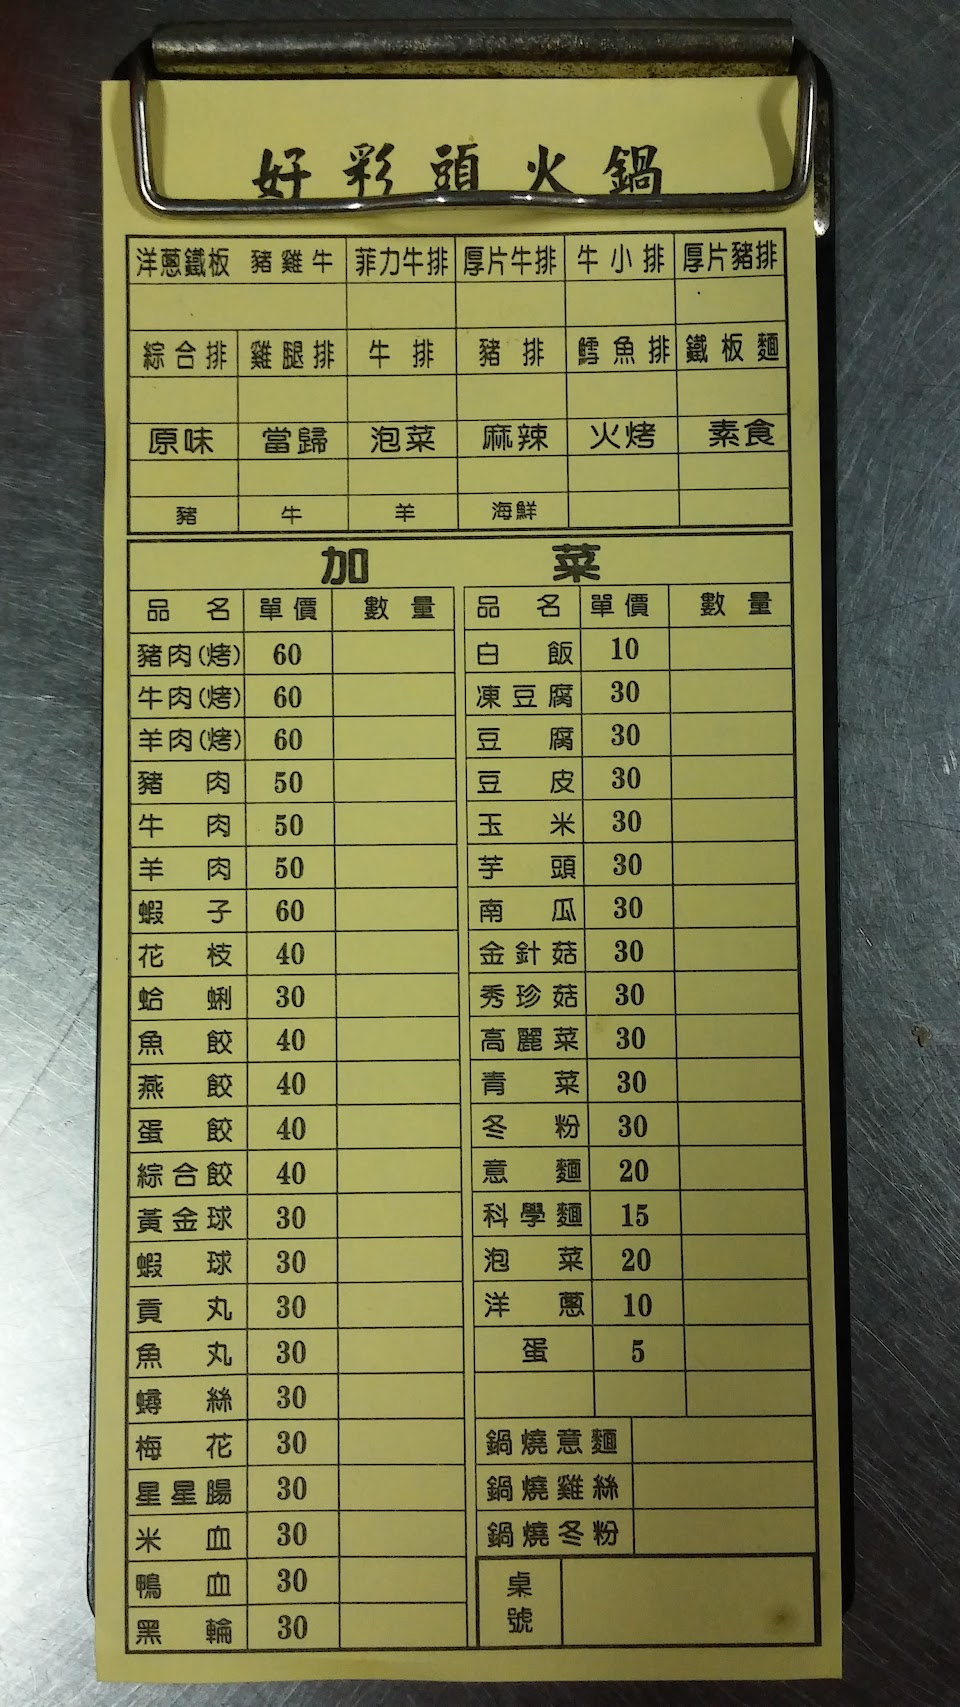 好彩頭火鍋
洋蔥鐵板 豬雞牛 菲力牛排 厚片牛排 牛小排 厚片豬排
綜合排 雞腿排 牛排 豬排 鱈魚排 鐵板麵
原味 當歸 泡菜 麻辣 火烤 素食
豬 牛 羊 海鮮
加菜
品名 單價 數量 品名 單價 數量
豬肉(烤) 60 白飯 10
牛肉(烤) 60 凍豆腐 30
羊肉(烤) 60 豆腐 30
豬肉 50 豆皮 30
牛肉 50 玉米 30
羊肉 50 芋頭 30
蝦子 60 南瓜 30
花枝 40 金針菇 30
蛤蜊 30 秀珍菇 30
魚餃 40 高麗菜 30
燕餃 40 青菜 30
蛋餃 40 冬粉 30
綜合餃 40 意麵 20
黃金球 30 科學麵 15
蝦球 30 泡菜 20
貢丸 30 洋蔥 10
魚丸 30 蛋 5
蟳絲 30
梅花 30 鍋燒意麵
星星腸 30 鍋燒雞絲
米血 30 鍋燒冬粉
鴨血 30 桌號
黑輪 30